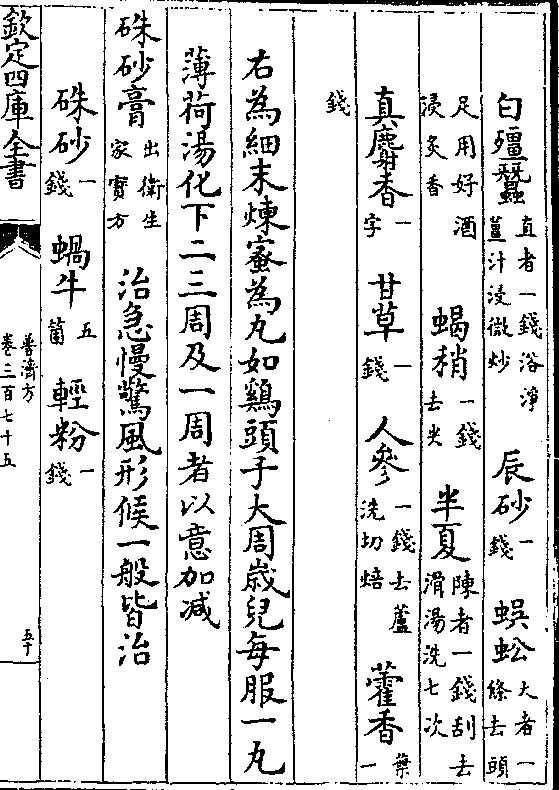 白殭蠶直者一錢浴淨薑汁浸微炒 辰砂一錢 蜈蚣大者一條去頭
足用好酒浸炙香 蝎稍一錢去尖 半夏陳者一錢刮去滑湯洗七次
真麝香一字 甘草一錢 人參一錢去蘆洗切焙 藿香葉一
錢
右為細末煉蜜為丸如鷄頭子大周歲兒每服一丸
薄荷湯化下二三周及一周者以意加減
硃砂膏出衛生家寳方 治急慢驚風形候一般皆治
硃砂一錢 蝸牛五箇 輕粉一錢
欽定四庫全書
普濟方
卷三百七十五
五十